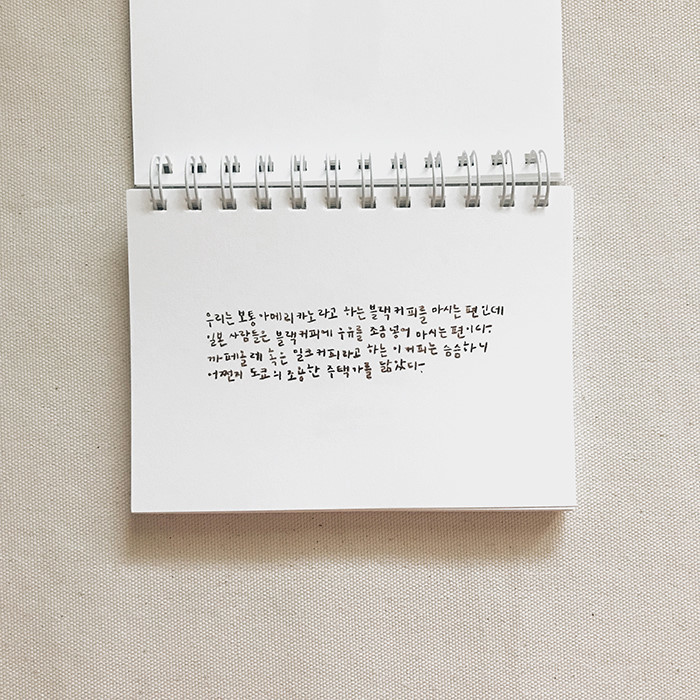 우리는 보통 아메리카노라고 하는 블랙커피를 마시는 편인데
일본 사람들은 블랙커피에 우유를 조금 넣어 마시는 편이다.
까페올레 혹은 밀크커피라고 하는 이 커피는 슴슴하니
어쩐지 도쿄의 조용한 주택가를 닮았다.